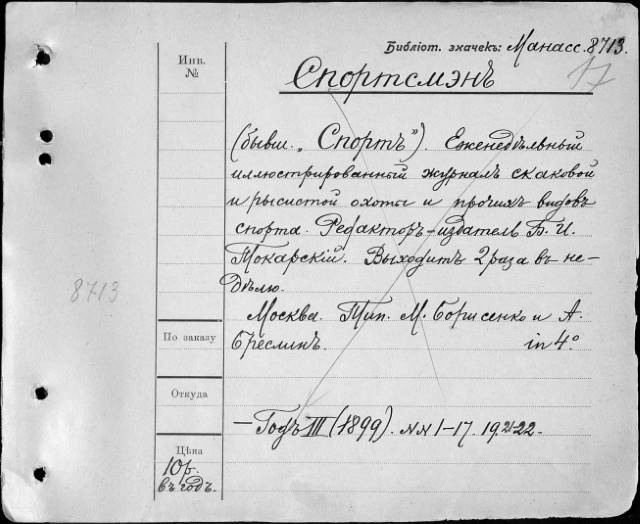 Библіот. значекъ: Манасс. 8713.
17
Инв.
№
Спортсмэнъ
(бывш. „Спортъ"). Еженедѣльный
иллюстрированный журналъ скаковой
и рысистой охоты и прочихъ видовъ
спорта. Редакторъ-издатель Б. И.
Токарскій. Выходитъ 2 раза въ не-
дѣлю.
8713
Москва. Тип. М. Борисенко и А.
Бреслинъ. in 4°
По заказу
Откуда
— Годъ III (1899). NN 1-17. 19, 21-22.
Цѣна
10 р.
въ годъ.